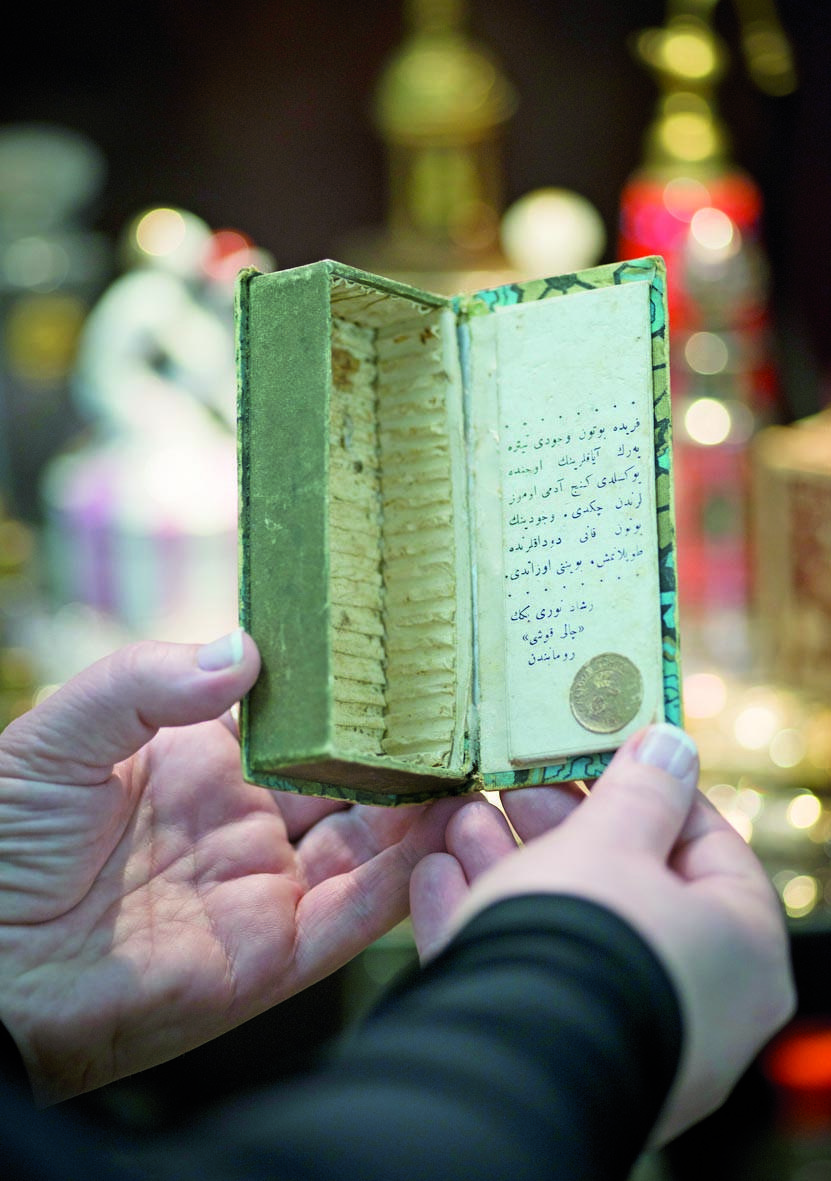 . . . . . . .
فریده بوتون وجودی تیتره
یه‌رك آیاقلرینك اوجنده
یوكسلدی كنج آدمی اوموز
لرندن چكدی. وجودینك
بوتون قانی دوداقلرنده
طوپلانمش. بویننی اوزاندی.
. . . . . . .
رشاد نوری بكك
«چالی قوشی»
رومانندن